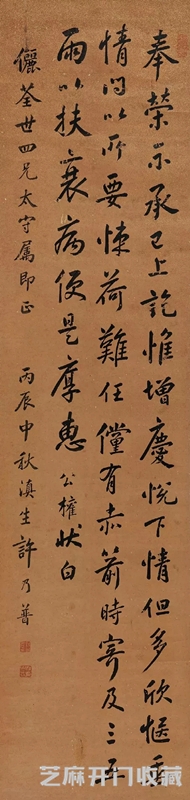 奉榮示承已上訖惟增慶悅下情但多欣愜垂
情問以所要悚荷難任儻有赤箭時寄及三五
兩以扶衰病便是厚惠公權狀白
儷荃世四兄太守屬即正 丙辰中秋滇生許乃普
芝麻开门收藏